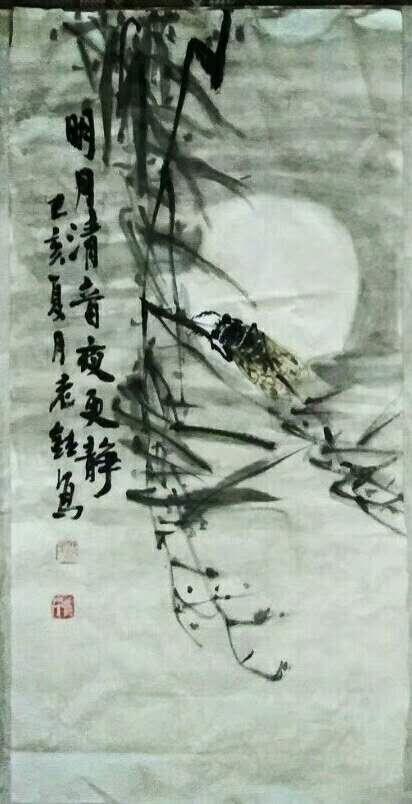 明月清音夜更静
己亥夏月老钰写